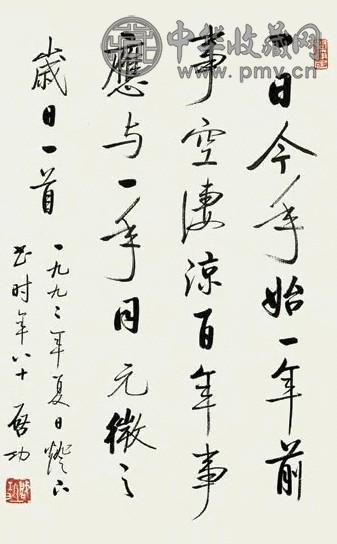 中华收藏网
www.pmv.cn
一日今年始一年前
事空淒涼百年事
應与一年同元微之
歲日一首
一九九二年夏日燈下
书时年八十 启功